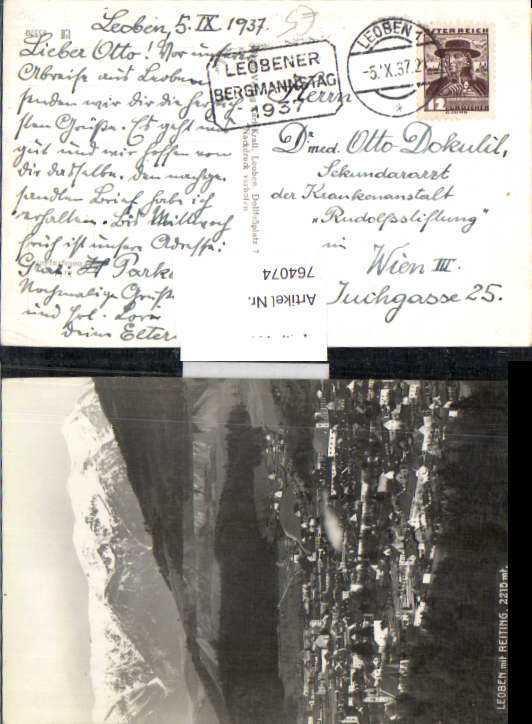 Leoben, 5. IX 1937.
Lieber Otto! Vor unserer
Abreise aus Leoben
senden wir dir die herzlich-
sten Grüße. Es geht uns
gut und wir hoffen von
dir dasselbe. Den nachge-
sandten Brief habe ich
erhalten. Bis Mittwoch
früh ist unsere Adresse:
Graz: Park
Nochmalige Grüße
und
Deine Eltern
LEOBENER
BERGMANNSTAG
1937
LEOBEN 1
-5.IX.37.2
ÖSTERREICH
12
Herrn
Dr. med. Otto Dokulil,
Sekundararzt
der Krankenanstalt
„Rudolfsstiftung"
in
Wien III.
Juchgasse 25.
Krall, Leoben, Dollfußplatz 7
Nachdruck verboten
Artikel Nr.
764074
LEOBEN mit REITING, 2215 mt.